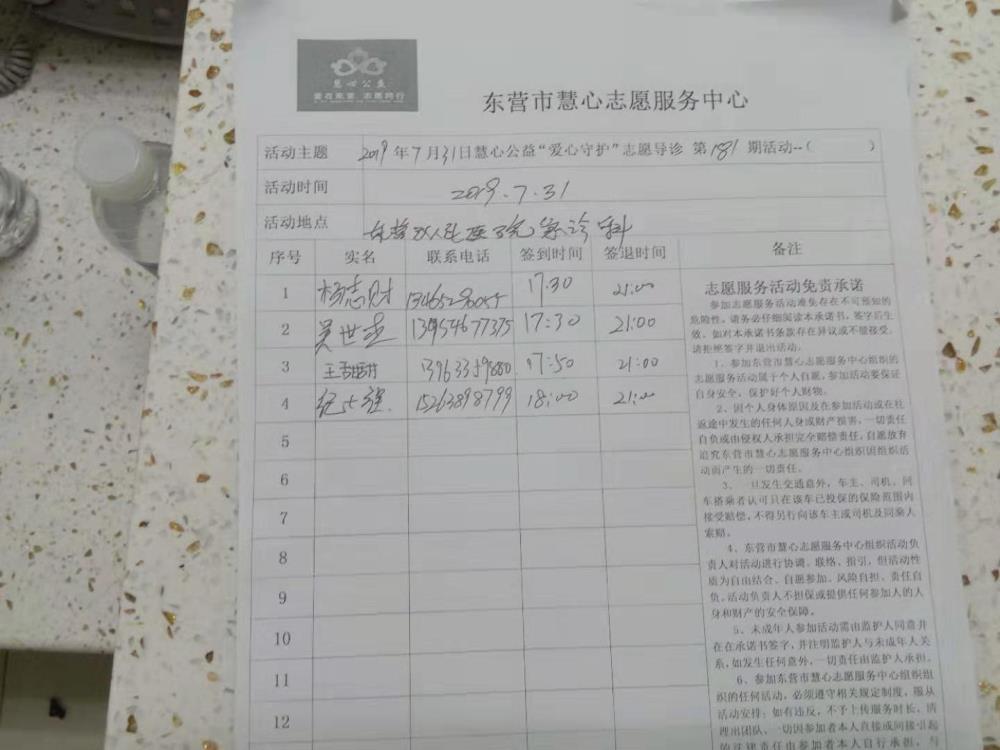 慧心公益
爱在东营 志愿同行
东营市慧心志愿服务中心
活动主题 2019年7月31日慧心公益“爱心守护”志愿导诊 第181期活动--( )
活动时间 2019.7.31
活动地点 东营市人民医院急诊科
序号 实名 联系电话 签到时间 签退时间 备注
1 杨志财 17:30 21:00
2 吴世 13954677375 17:30 21:00
3 王 13963359880 17:50 21:00
4 纪 15263898799 18:00 21:00
5
6
7
8
9
10
11
12
志愿服务活动免责承诺
参加志愿服务活动难免存在不可预知的
危险性。请务必仔细阅读本承诺书,签字后生
效。如对本承诺书条款存在异议或不能接受,
请拒绝签字并退出活动。
1、参加东营市慧心志愿服务中心组织的
志愿服务活动属于个人自愿,参加活动要保证
自身安全,保护好个人财物。
2、因个人身体原因及在参加活动或在往
返途中发生的任何人身或财产损害,一切责任
自负或由侵权人承担完全赔偿责任,自愿放弃
追究东营市慧心志愿服务中心组织因组织活
动而产生的一切责任。
3、一旦发生交通意外,车主、司机、同
车搭乘者认可只在该车已投保的保险范围内
接受赔偿,不得另行向该车主或司机及同乘人
索赔。
4、东营市慧心志愿服务中心组织活动负
责人对活动进行协调、联络、指引,但活动性
质为自由结合、自愿参加、风险自担、责任自
负。活动负责人不担保或提供任何参加人的人
身和财产的安全保障。
5、未成年人参加活动需由监护人同意并
在在承诺书签字,并注明监护人与未成年人关
系,如发生任何意外,一切责任由监护人承担。
6、参加东营市慧心志愿服务中心组织组
织的任何活动,必须遵守相关规定制度,服从
活动安排;如有违反,不予上传服务时长、清
理出团队、一切因参加者本人直接或间接引起
的法律责任由参加者本人自行承担,与